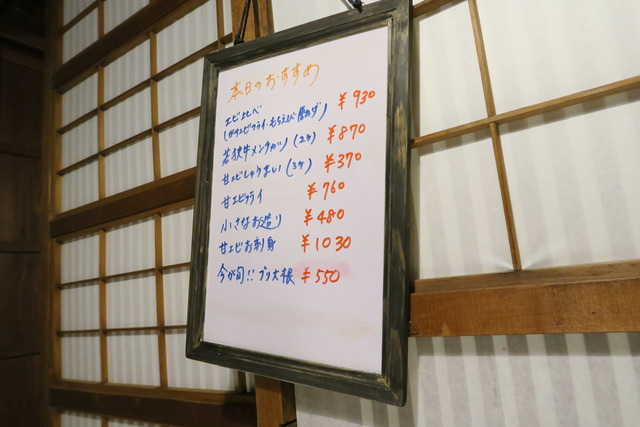 本日のおすすめ
エビ比べ ¥930
(ガサエビフライ・もちえび唐あげ)
若狭牛メンチカツ(2ケ) ¥870
甘エビしゅうまい(3ケ) ¥370
甘エビフライ ¥760
小さなお造り ¥480
甘エビお刺身 ¥1030
今が旬!! ブリ大根 ¥550